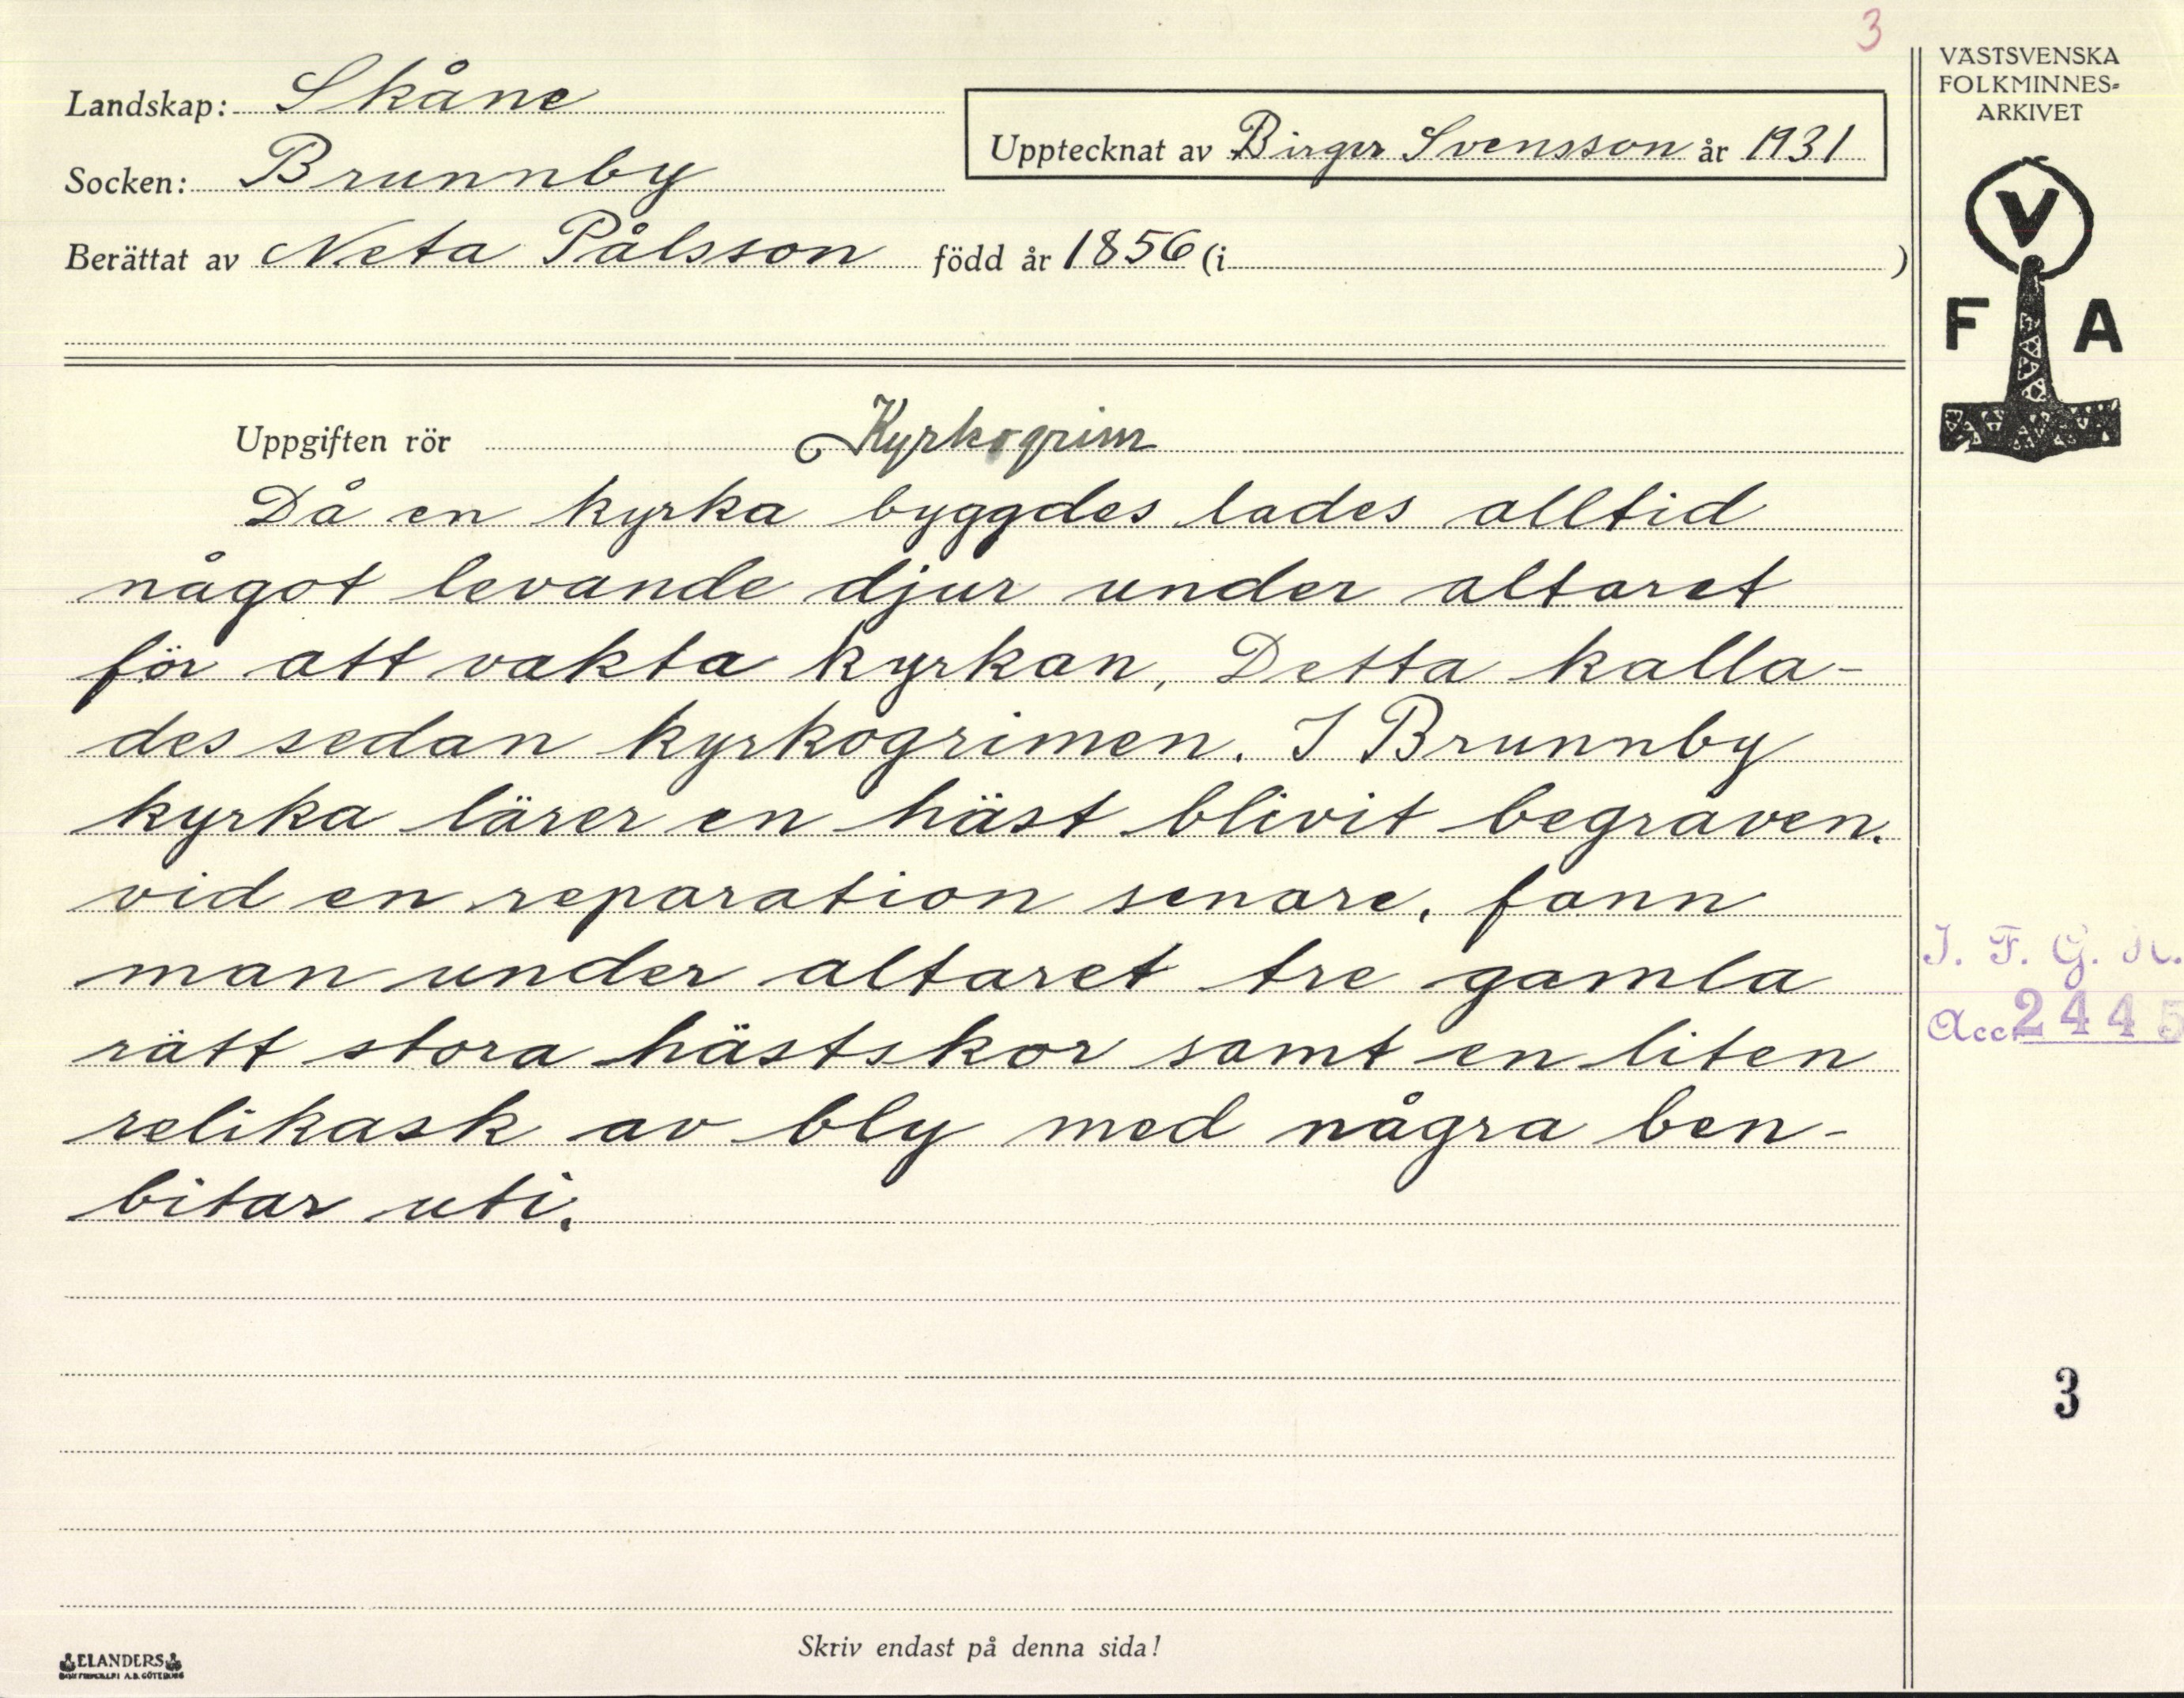 3
Landskap: Skåne
Socken: Brunnby
Upptecknat av Birger Svensson år 1931
Berättat av Neta Pålsson född år 1856 (i )
VÄSTSVENSKA
FOLKMINNES-
ARKIVET
V
F A
Uppgiften rör Kyrkogrim
Då en kyrka byggdes lades alltid
något levande djur under altaret
för att vakta kyrkan, Detta kalla-
des sedan kyrkogrimen. I Brunnby
kyrka lärer en häst blivit begraven.
vid en reparation senare, fann
man under altaret tre gamla
rätt stora hästskor samt en liten
relikask av bly med några ben-
bitar uti.
I. F. G. H.
Acc. 2445
3
Skriv endast på denna sida!
ELANDERS